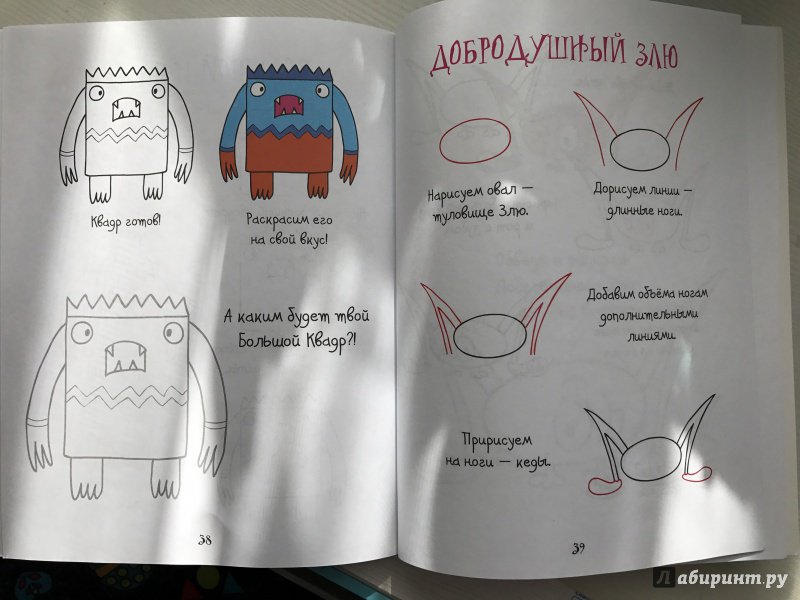 Квадр готов!
Раскрасим его
на свой вкус!
А каким будет твой
Большой Квадр?!
38
ДОБРОДУШНЫЙ ЗЛЮ
Нарисуем овал —
туловище Злю.
Дорисуем линии —
длинные ноги.
Добавим объёма ногам
дополнительными
линиями.
Пририсуем
на ноги — кеды.
39
Лабиринт.ру